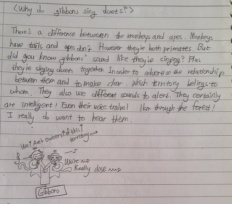 (Why do gibbons sing duets?)
There's a difference between the monkeys and apes. Monkeys
have tails and apes don't. However they're both primates. But
did you know gibbons' sound like they're singing?
they're singing together. In order to the relationship
between them and to make clear which territory belongs to
whom. They also use different sounds to alert. They certainly
are intelligent! Even their voice through the forest!
I really do want to hear them.
We're
Really close
Gibbons